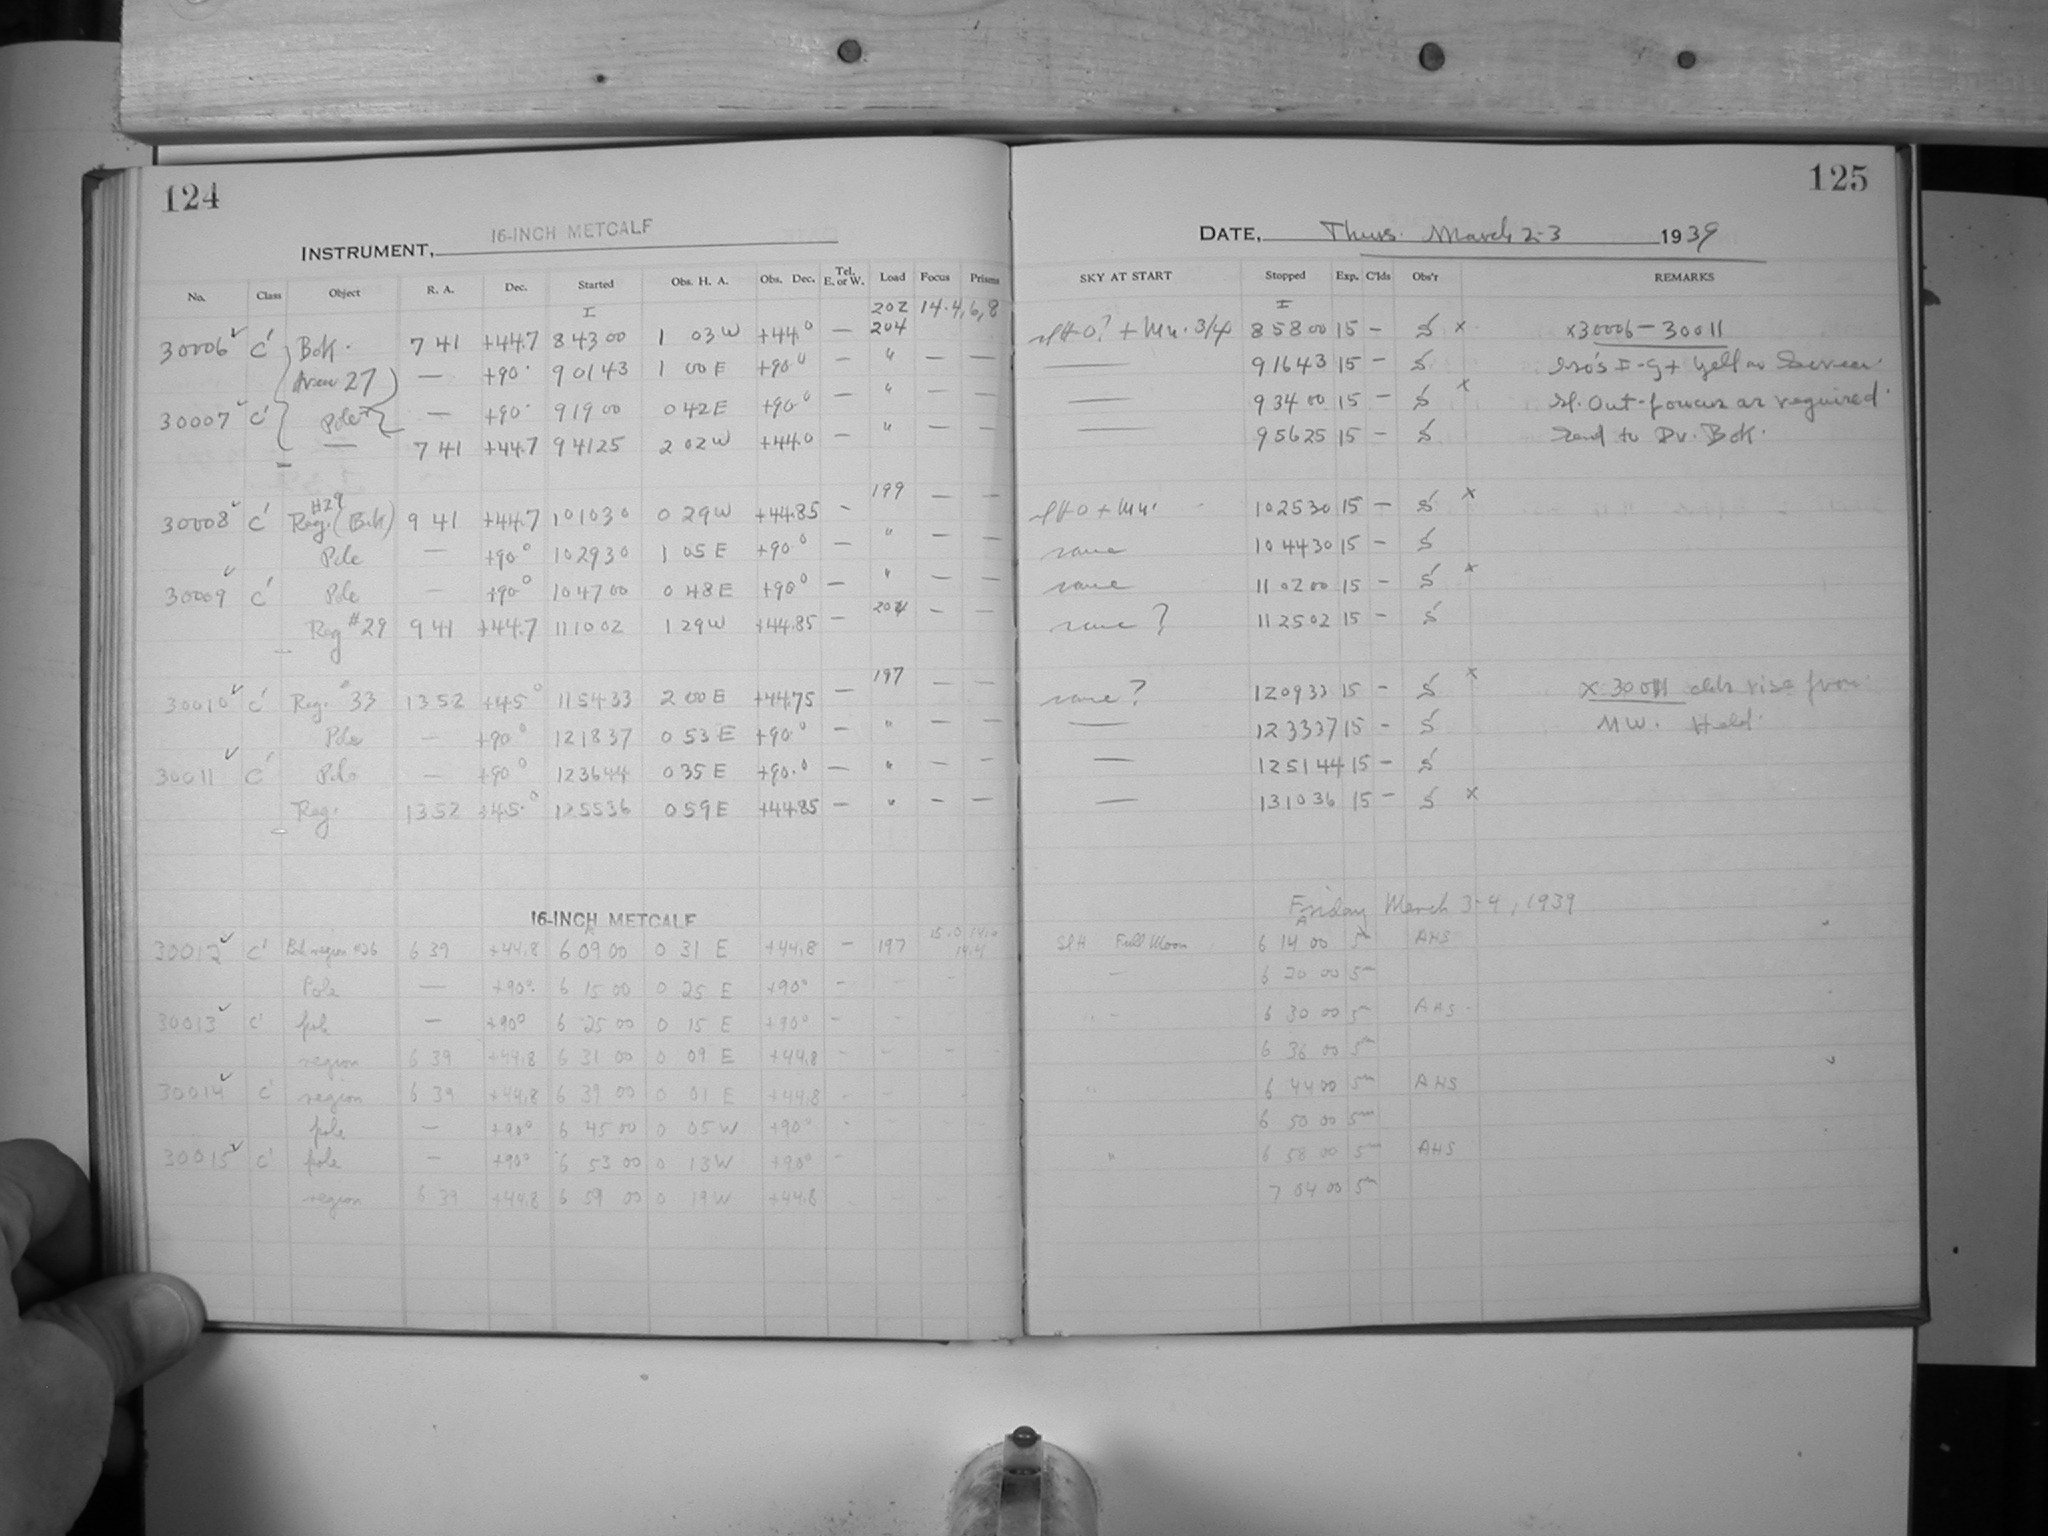 124
INSTRUMENT, 16-INCH METCALF
No. Class Object R. A. Dec. Started Obs. H. A. Obs. Dec. Tel. E. or W. Load Focus Prisms
I 202 14.4,6,8
30006 ✓ C' Bok. 7 41 +44.7 8 43 00 1 03 W +44.0 — 204
Area 27 — +90° 9 01 43 1 00 E +90° — " — —
30007 ✓ C' Pole — +90° 9 19 00 0 42 E +90° — " — —
— 7 41 +44.7 9 41 25 2 02 W +44.0 — " — —
#29 199 — —
30008 ✓ C' Reg. (Bok) 9 41 +44.7 10 10 30 0 29 W +44.85 —
Pole — +90° 10 29 30 1 05 E +90° — " — —
30009 ✓ C' Pole — +90° 10 47 00 0 48 E +90° — " — —
Reg #29 9 41 +44.7 11 10 02 1 29 W +44.85 — 204 — —
197 — —
30010 ✓ C' Reg. #33 13 52 +45° 11 54 33 2 00 E +44.75 —
Pole — +90° 12 18 37 0 53 E +90° — " — —
30011 ✓ C' Pole — +90° 12 36 44 0 35 E +90.° — " — —
Reg. 13 52 +45.° 12 55 36 0 59 E +44.85 — " — —
16-INCH METCALF
15.0, 14.0
30012 ✓ C' Bok region 026 6 39 +44.8 6 09 00 0 31 E +44.8 — 197 14.4
Pole — +90° 6 15 00 0 25 E +90° -
30013 ✓ C' pole — +90° 6 25 00 0 15 E +90° -
region 6 39 +44.8 6 31 00 0 09 E +44.8 -
30014 ✓ C' region 6 39 +44.8 6 39 00 0 01 E +44.8 -
pole — +90° 6 45 00 0 05 W +90° -
30015 ✓ C' pole — +90° 6 53 00 0 13 W +90° -
region 6 39 +44.8 6 59 00 0 19 W +44.8
125
DATE, Thurs. March 2-3 1939
SKY AT START Stopped Exp. C'lds Obs'r REMARKS
I
slH 0? + Mn. 3/4 8 58 00 15 — S x x30006 — 30011
— 9 16 43 15 — S Yellow Screen
— 9 34 00 15 — S x Sl. Out-focus as required.
— 9 56 25 15 — S Send to Dr. Bok.
slH 0 + Mn. 10 25 30 15 — S x
same 10 44 30 15 — S
same 11 02 00 15 — S x
same ? 11 25 02 15 — S
same ? 12 09 33 15 — S x x 30011 clds rise from
— 12 33 37 15 — S NW. Held.
— 12 51 44 15 — S
— 13 10 36 15 — S x
Friday March 3-4, 1939
A
SlH Full Moon 6 14 00 5m AHS
— 6 20 00 5m
" — 6 30 00 5m AHS
6 36 00 5m
" 6 44 00 5m AHS
6 50 00 5m
" 6 58 00 5m AHS
7 04 00 5m